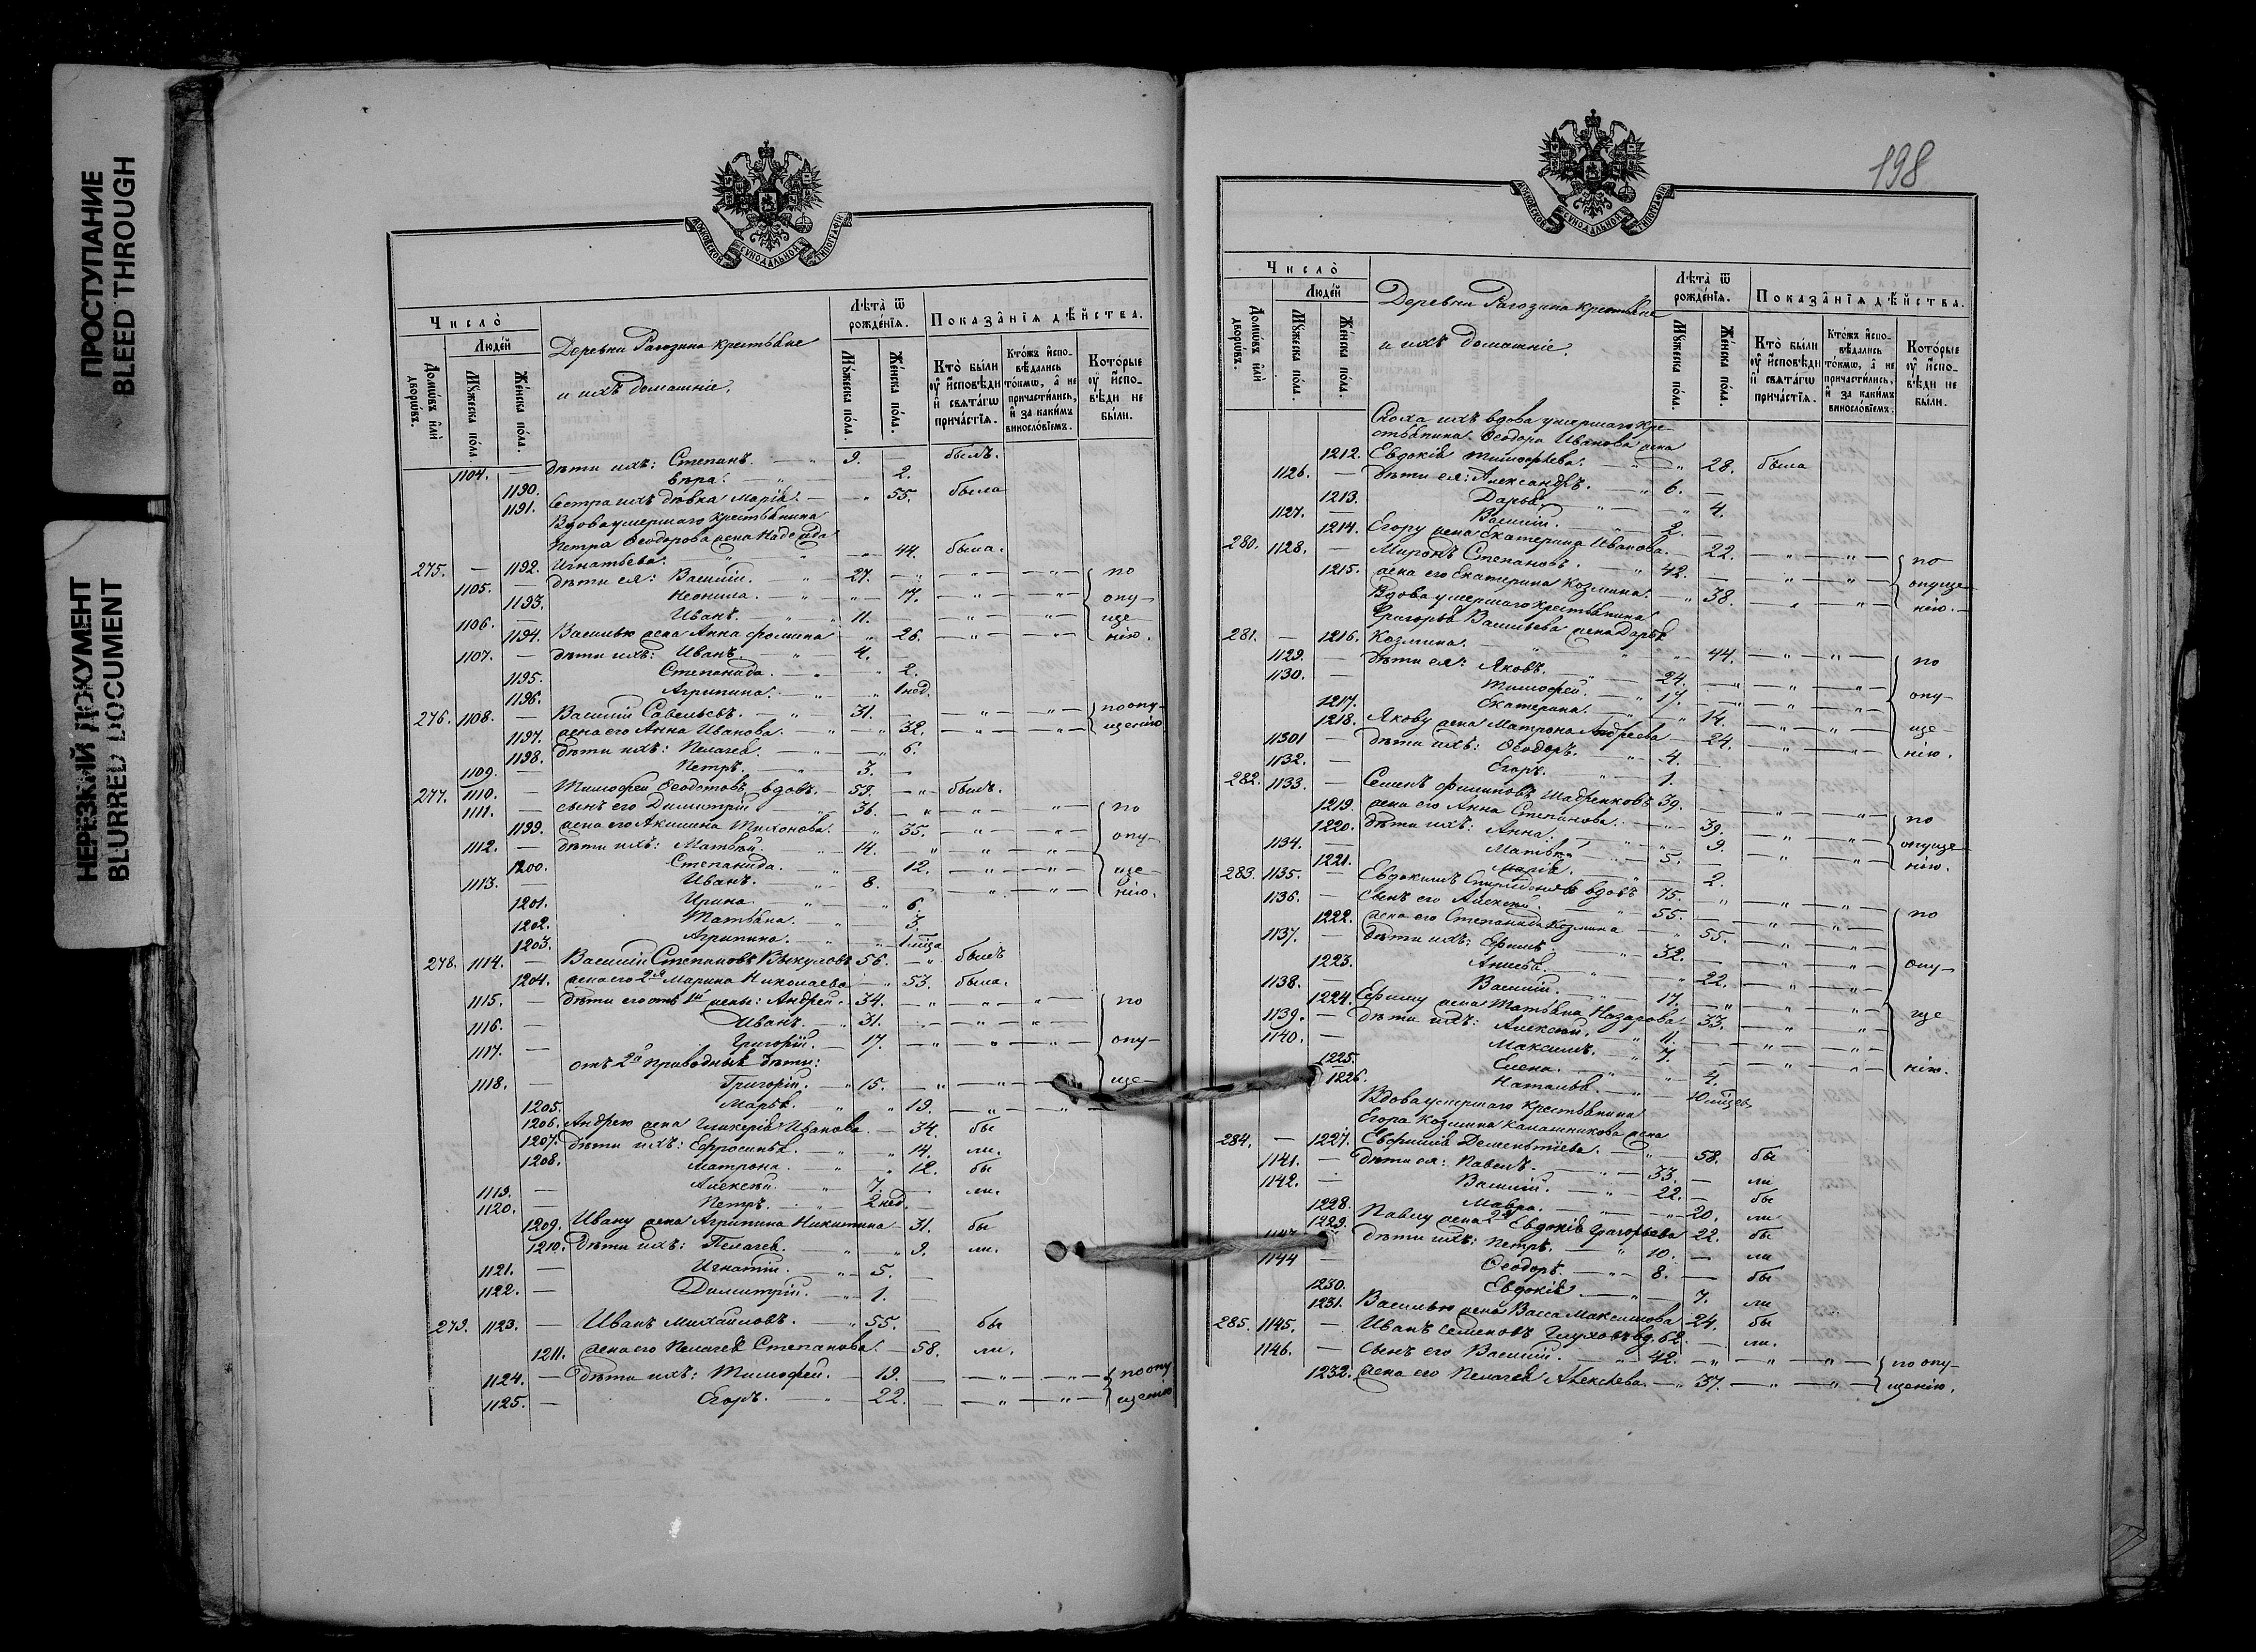 ПРОСТУПАНИЕ
BLEED THROUGH
НЕРЕЗКИЙ ДОКУМЕНТ
BLURRED DOCUMENT
МОСКОВСКОЙ СѴНОДАЛЬНОЙ ТИПОГРАФІИ
Число̀
Люде́й
Домѡ́въ и҆лѝ дворѡ́въ.
Мꙋ́жеска по́ла.
Же́нска по́ла.
Деревни Рагозина крестьяне
и ихъ домашніе.
Лѣ́та ѿ рожде́нїѧ.
Мꙋ́жеска по́ла.
Же́нска по́ла.
Показа̑нїѧ дѣ́йства.
Кто̀ бы́ли оу҆ и҆́сповѣди и҆ свѧта́гѡ прича́стїѧ.
Кто́жъ и҆спо- вѣ́дались то́кмѡ, а҆ не причасти́лись, и҆ за каки́мъ виносло́вїемъ.
Кото́рые оу҆ и҆спо- вѣди не бы́ли.
1104. — дѣти ихъ: Степанъ. — " 9. — былъ.
1190. Вѣра. — " — 2.
1191. Сестра ихъ дѣвка Марія. — " 55. была
Вдова умершаго крестьянина
Петра Ѳеодорова жена Надежда
275. — 1192. Игнатьева. " " — " — 44. была.
1105. — дѣти ея: Василій. " 27. — " — " — " — по
1193. Неонила. — " " — 17. — " — " — опу-
1106. — Иванъ. " 11. — " — " — ще-
1194. Василью жена Анна Фомина " 26. — " — " — нію.
1107. — дѣти ихъ: Иванъ. — " — 4. —
1195. Степанида. — " — 2.
1196. Агрипина. — " " 1 нед.
276. 1108. — Василій Савельевъ. — " — 31. — — " — " — по опу-
1197. жена его Анна Иванова. — " " 32. — " — " — щенію
1198. дѣти ихъ: Пелагея. — " — 6.
1109. — Петръ. — " — 3. —
277. 1110. — Тимофей Ѳеодотовъ, вдовъ. — 59. — " — былъ.
1111. — сынъ его Димитрій 36. — " " — " — по
1199. жена его Акилина Тихонова. — " 35. — " — " — опу-
1112. — дѣти ихъ: Матвѣй. " — 14. — " " — " —
1200. Степанида. — " — 12. — " — " — ще-
1113. — Иванъ. " — 8. — " — " — нію.
1201. Ирина. — " — " 6.
1202. Татьяна. — " 3.
1203. Агрипина. — " " 1 мѣца
278. 1114. — Василій Степановъ Викуловъ 56. — " былъ
1204. жена его 2я Марина Николаева " 53. была.
1115. — дѣти его отъ 1й жены: Андрей. 34. — " — " " — по
1116. — Иванъ. — " 31. — — " — " —
1117. — Григорій. — 17. — " — " — " — опу-
отъ 2й приводныя дѣти:
1118. — Григорій. — " 15. — " — " — ще-
1205. Марья. " " 19. — " — " —
1206. Андрею жена Гликерія Иванова. — 34. бы
1207. дѣти ихъ: Ефросинья. — " " 14. ли.
1208. Матрона. " " 12. бы
1119. — Алексѣй. — " — 7. — ли.
1120. — Петръ. — " — 2 нед. —
1209. Ивану жена Агрипина Никитина — 31. бы
1210. Дѣти ихъ: Пелагея. " — " 9. ли.
1121. — Игнатій. — " — 5. —
1122. — Димитрій. — " — 1. —
279. 1123. — Иванъ Михайловъ. — " 55. бы
1211. жена его Пелагея Степанова. — 58. ли.
1124. — дѣти ихъ: Тимофей. — 19. — — " — " — по опу
1125. — Егоръ. — " — 22. — — " — " — щенію
198
МОСКОВСКОЙ СѴНОДАЛЬНОЙ ТИПОГРАФІИ
Число̀
Люде́й
Домѡ́въ и҆лѝ дворѡ́въ.
Мꙋ́жеска по́ла.
Же́нска по́ла.
Деревни Рагозина крестьяне
и ихъ домашніе.
Лѣ́та ѿ рожде́нїѧ.
Мꙋ́жеска по́ла.
Же́нска по́ла.
Показа̑нїѧ дѣ́йства.
Кто̀ бы́ли оу҆ и҆́сповѣди и҆ свѧта́гѡ прича́стїѧ.
Кто́жъ и҆спо- вѣ́дались то́кмѡ, а҆ не причасти́лись, и҆ за каки́мъ виносло́вїемъ.
Кото́рые оу҆ и҆спо- вѣди не бы́ли.
Сноха ихъ вдова умершаго кре-
стьянина Ѳеодора Иванова жена
1212. Евдокія Тимофѣева. — " — " 28. была
1126. — дѣти ея: Александръ. — " 6. —
1213. Дарья. — " — " 4.
1127. — Василій. — " — 2. —
1214. Егору жена Екатерина Иванова. — 22. — " — " — по
280. 1128. — Миронъ Степановъ. — " 42. — " — " — опуще-
1215. жена его Екатерина Козмина. — " 38. — " — " — нію. —
Вдова умершаго крестьянина
Григорья Васильева жена Дарья
281. — 1216. Козмина. " " — 44. — " — " — по
1129. — дѣти ея: Яковъ. " — 24. — " — " —
1130. — Тимофей. — " 17. — " — " — опу-
1217. Екатерина. — " — " 14. — " — " —
1218. Якову жена Матрона Андреева — 24. — " — " — ще-
11301 — дѣти ихъ: Ѳеодоръ. — " — 4. — нію.
1132. — Егоръ. — " — 1. —
282. 1133. — Семенъ Филиповъ Шадренковъ 39. — — " — " — по
1219. жена его Анна Степанова. — " — 39. — " — " — опуще-
1220. дѣти ихъ: Анна. " — " 9. — " — " — нію.
1134. — Матвѣй. — " — 5. —
1221. Марія. — " — 2.
283. 1135. — Евдокимъ Спиридоновъ вдовъ 75. — " — " — " — по
1136. — Сынъ его Алексѣй. — " 55. — — " — " —
1222. жена его Степанида Козмина — " 55. — " — " —
1137. — дѣти ихъ: Ефимъ. — " 32. — — " — " — опу-
1223. Анисья. — " — " 22. — " — " —
1138. — Василій. — " — 17. — " — " — " —
1224. Ефиму жена Татьяна Назарова — 33. — " — " — ще
1139. — дѣти ихъ: Алексѣй. " 11. — — " — " —
1140. — Максимъ. — " 7. — — " — " — нію.
1225. Елена. — " — " 4.
1226. Наталья. — " — 10 мѣцевъ
Вдова умершаго крестьянина
Егора Козмина Калашникова жена
284. — 1227. Евфимія Дементіева. — " — 58. бы
1141. — дѣти ея: Павелъ. — " — 33. — ли
1142. — Василій. — " — 22. — бы
1228. Мавра. — " — " 20. ли.
1229. Павлу жена 2я Евдокія Григорьева 22. бы
1143 — дѣти ихъ: Петръ. — " 10. — ли
1144 — Ѳеодоръ. — " — 8. — бы
1230. Евдокія — " — 7. ли
1231. Василью жена Васса Максимова 24. бы
285. 1145. — Иванъ Семеновъ Глуховъ вд. 62. — ли.
1146. — Сынъ его Василій. — " 42. — " — " — " — по опу-
1232. жена его Пелагея Алексѣева. — " 37. — " — " — щенію.